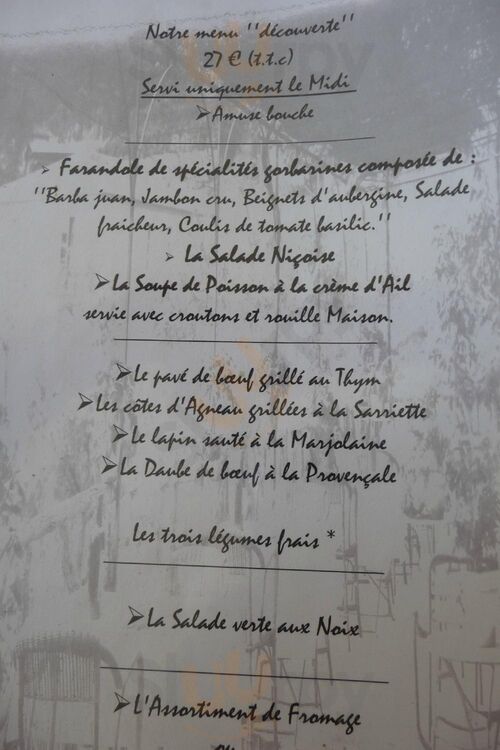 Notre menu "découverte"
27 € (t.t.c)
Servi uniquement le Midi
➢Amuse bouche
➢ Farandole de spécialités gorbarines composée de :
"Barba juan, Jambon cru, Beignets d'aubergine, Salade
fraicheur, Coulis de tomate basilic."
➢ La Salade Niçoise
➢La Soupe de Poisson à la crème d'Ail
servie avec croutons et rouille Maison.
➢Le pavé de bœuf grillé au Thym
➢Les côtes d'Agneau grillées à la Sarriette
➢Le lapin sauté à la Marjolaine
➢La Daube de bœuf à la Provençale
Les trois légumes frais *
➢La Salade verte aux Noix
➢L'Assortiment de Fromage